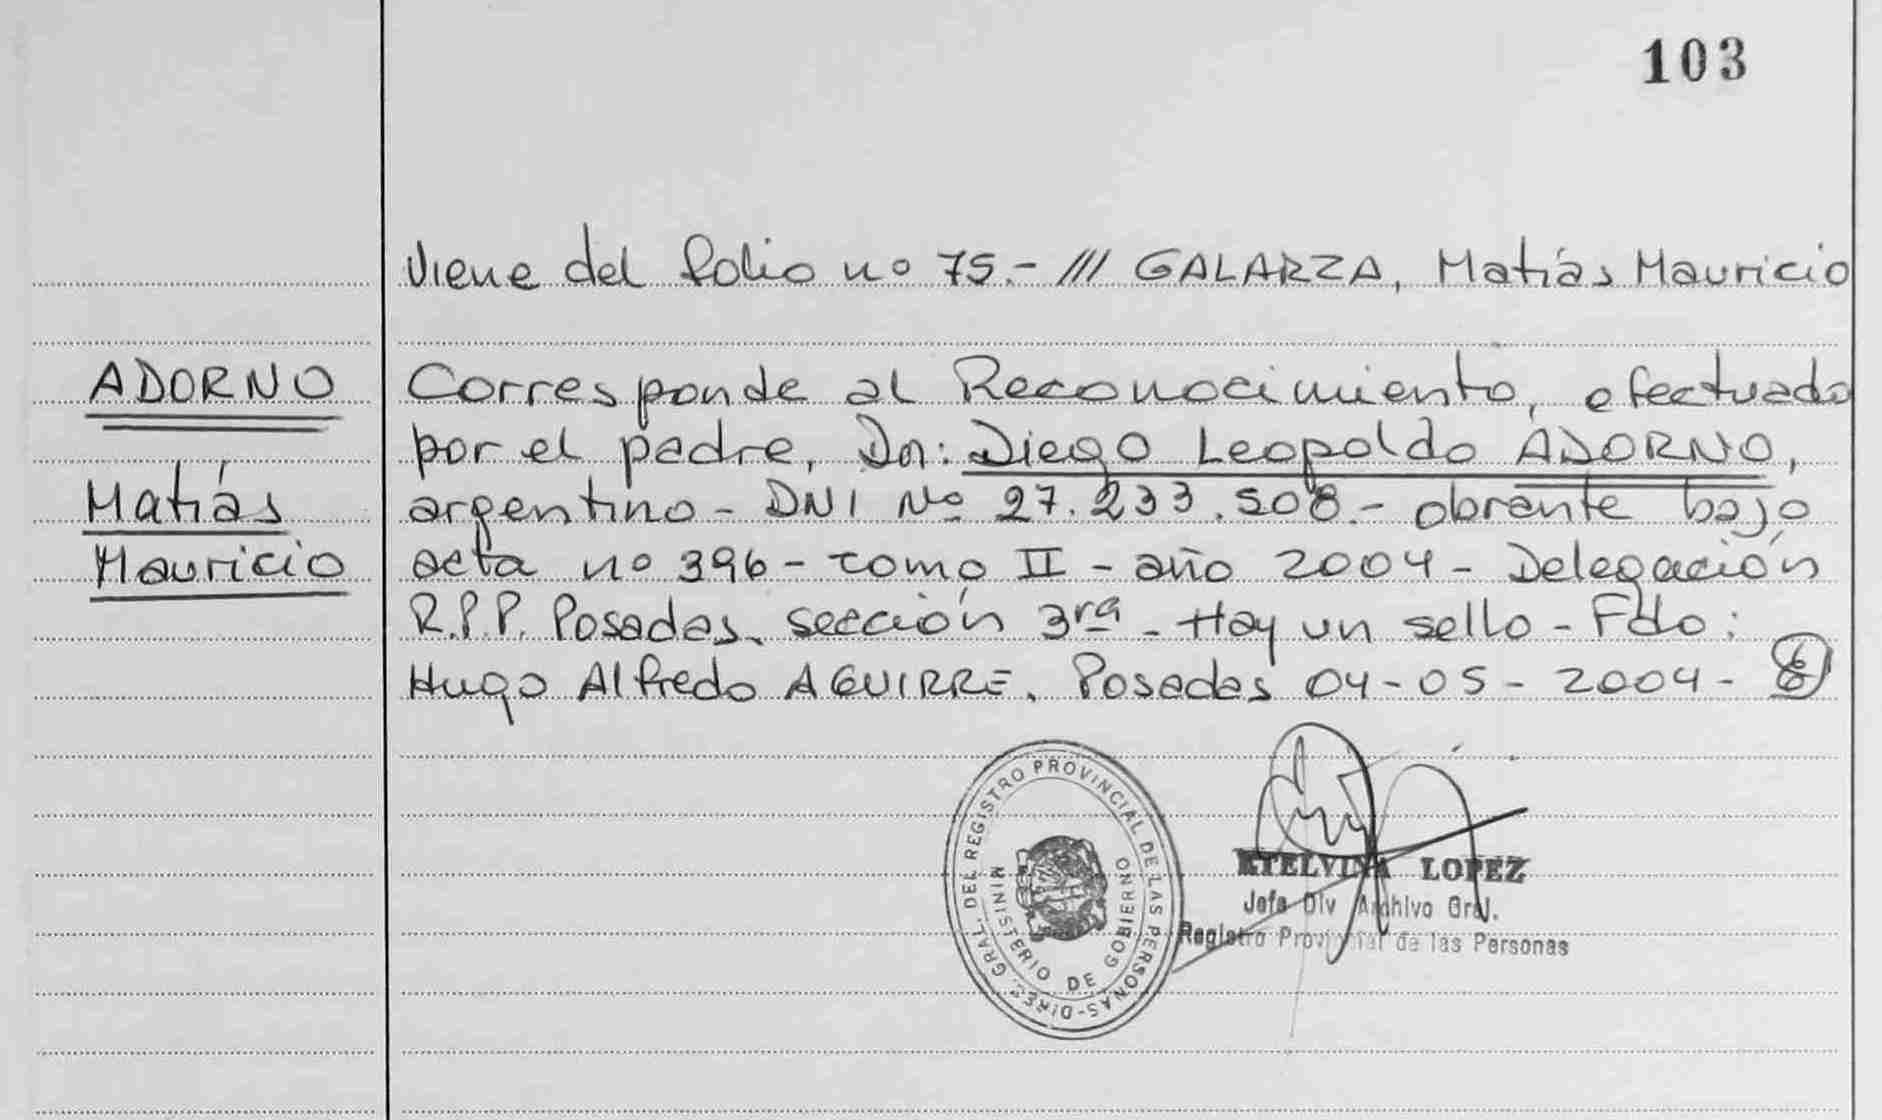 103
Viene del folio nº 75.- /// GALARZA, Matías Mauricio
ADORNO
Matías
Mauricio
Corresponde al Reconocimiento, efectuado
por el padre, Dn: Diego Leopoldo ADORNO,
argentino - DNI Nº 27.233.508.- obrante bajo
acta nº 396 - tomo II - año 2004 - Delegación
R.P.P. Posadas, sección 3ra - Hay un sello - Fdo:
Hugo Alfredo AGUIRRE. Posadas 04-05-2004-
GRAL. DEL REGISTRO PROVINCIAL DE LAS PERSONAS-DIREC.
MINISTERIO DE GOBIERNO
ETELVINA LOPEZ
Jefa Div Archivo Gral.
Registro Provincial de las Personas